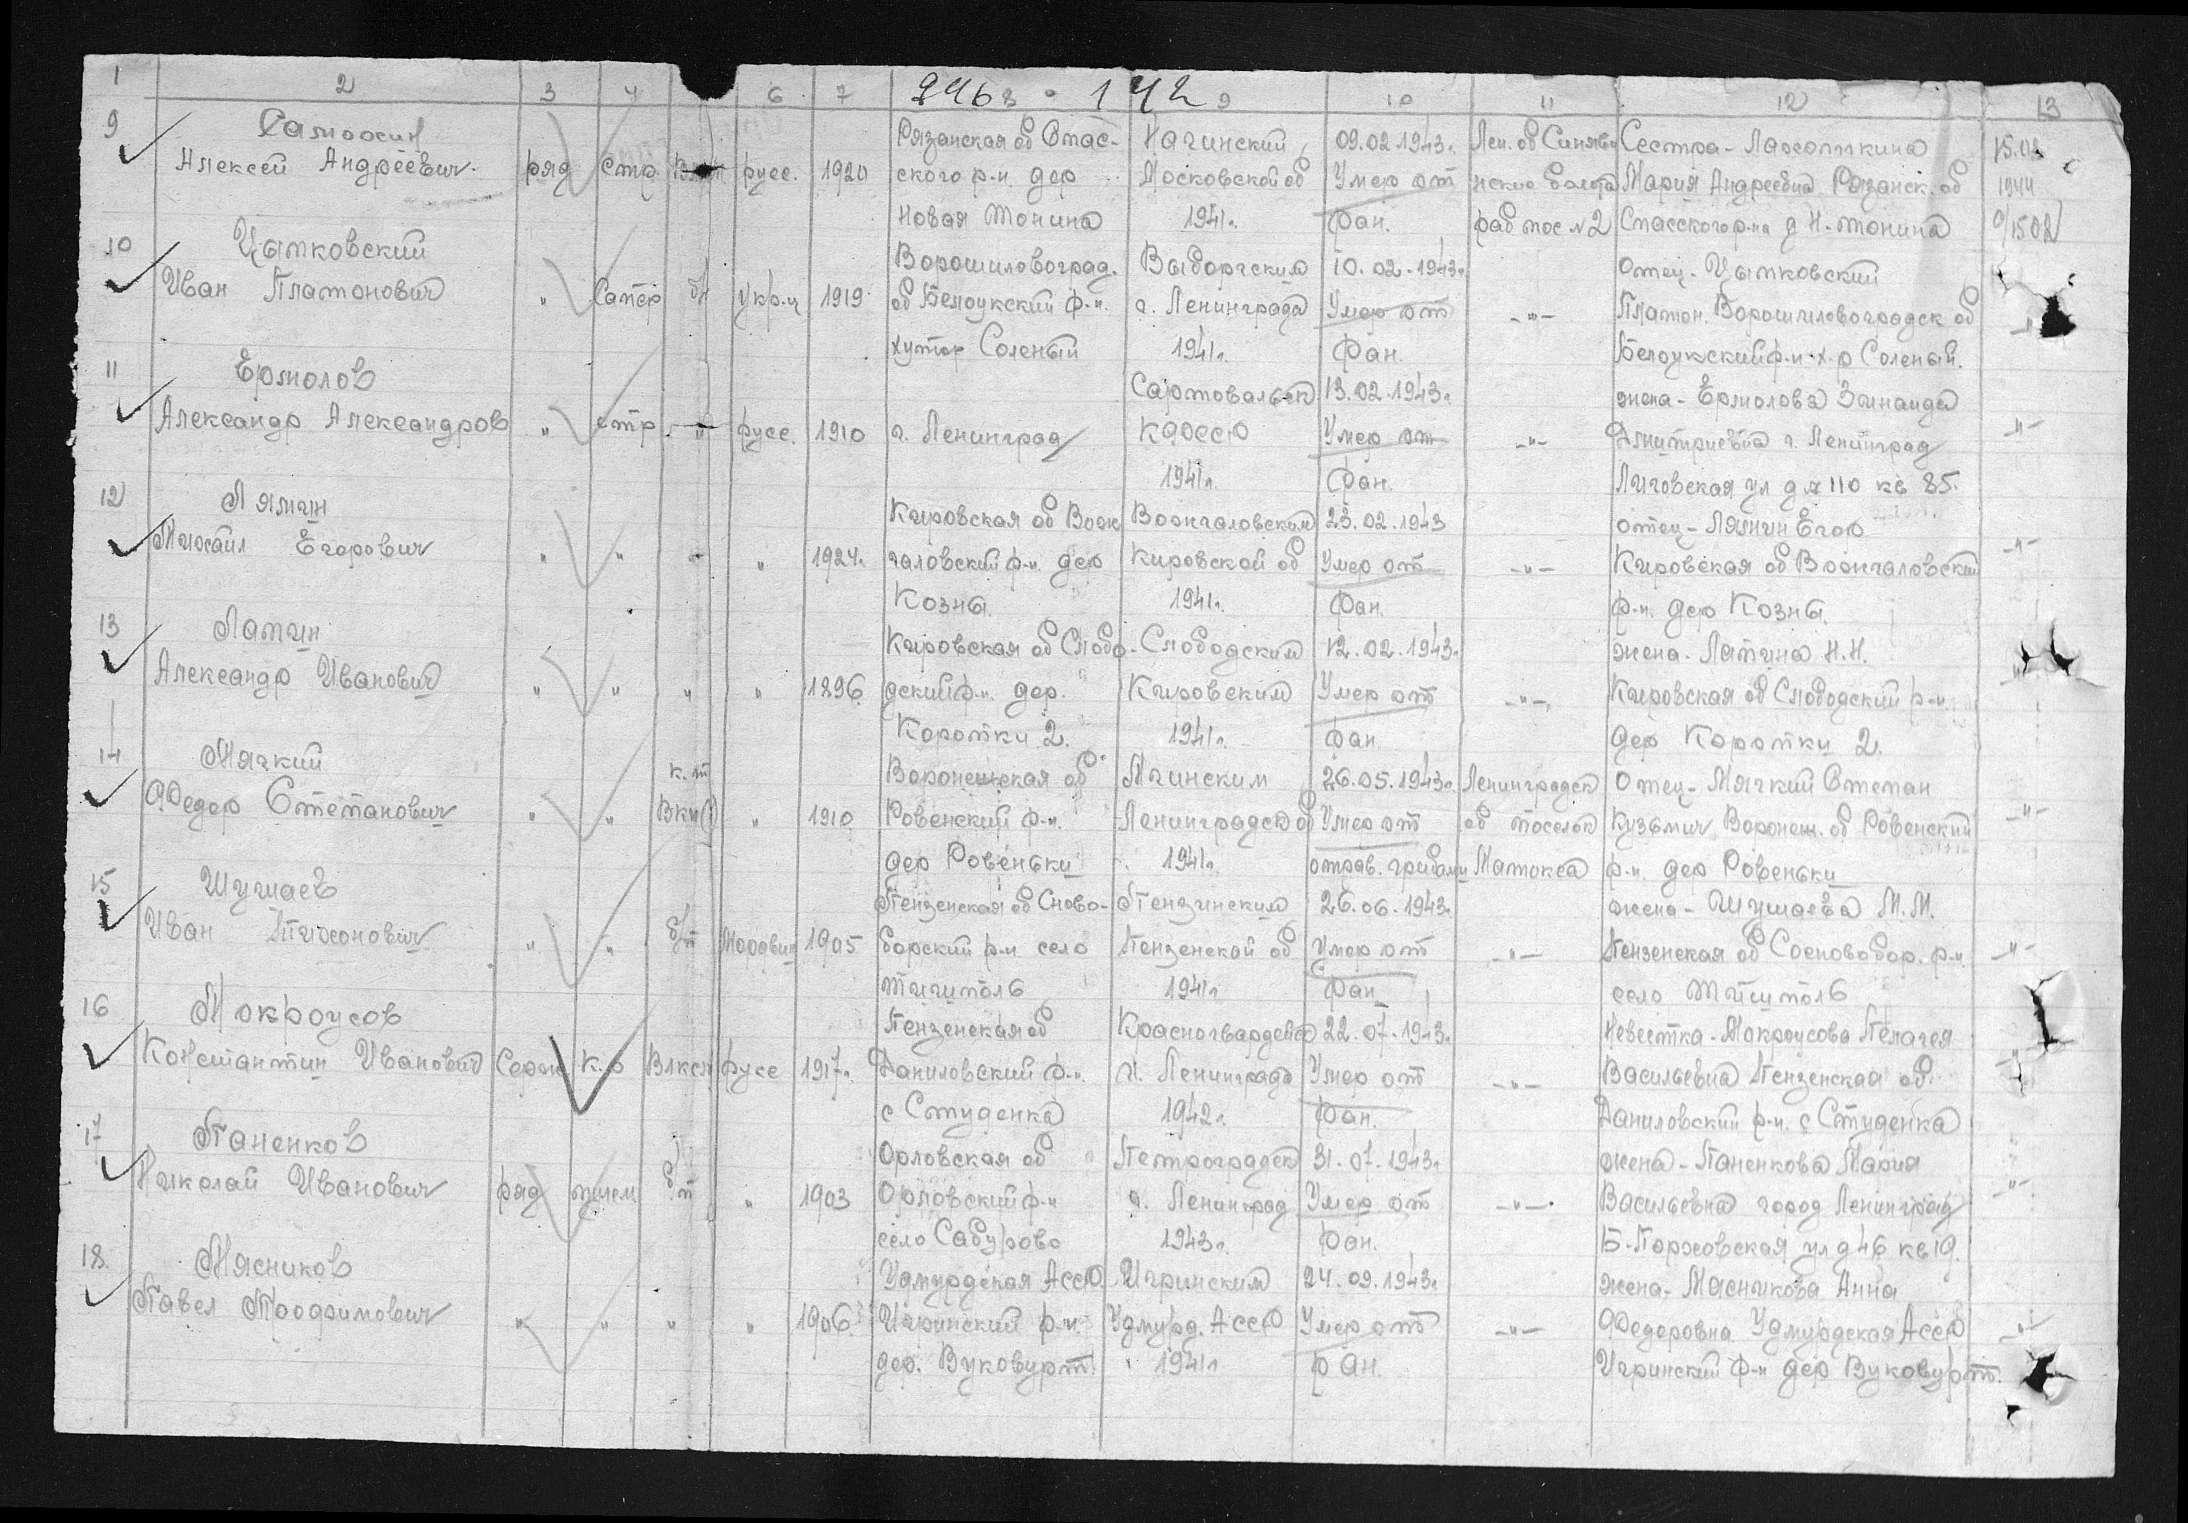 1 2 3 4 6 7 9 10 11 12 13
9463 - 142
9 Алексей Андреевич. ряд стр русс. 1920
Рязанская об Спас-
ского р-н. дер
Новая Тонина
Московской об
1941г.
09.02.1943г.
Умер от
ран.
Лен. об Синяви
нские болота
раб пос №2
Сестра -
Мария Андреевна Рязанск. об
Спасского р-на д Н-тонина
15.02
1944
0/1502
10 Цытковский
Иван Платонович " Сапер бп укр-ц 1919
Ворошиловоград.
об Белоцкский р-н.
хутор Соленый
Выборгским
г. Ленинграда
1941г.
10.02.1943г.
Умер от
ран.
-"-
Отец - Цытковский
Платон. Ворошиловоградск об
Белоцкский р-н х-р Соленый.
-"-
11 Ермолов
Александр Александров " стр " русс. 1910
г. Ленинград
Сартовальск
КФССР
1941г.
13.02.1943г.
Умер от
ран.
-"-
жена - Ермолова Зинаида
Дмитриевна г. Ленинград
Лиговская ул д №110 кв 85.
-"-
12 Лямин
Михаил Егорович " " " 1924г.
Кировская об Вож
галовский р-н. дер
Козны.
Вожгаловским
Кировской об
1941г.
23.02.1943
Умер от
ран.
-"-
отец - Лямин Егор
Кировская об Вожгаловский
р-н. дер Козны.
-"-
13 Лапин
Александр Иванович " " " " 1896
Кировская об Слобо-
дский р-н. дер.
Коротки 2.
Слободским
Кировским
1941г.
12.02.1943г.
Умер от
ран
-"-
жена - Лапина Н.Н.
Кировская об Слободский р-н.
дер Коротки 2.
"
14 Мягкий
Федор Степанович " " к. т ВКП(б) " 1910
Воронежская об
Ровенский р-н.
дер Ровеньки
Мгинским
Ленинградск об
1941г.
26.05.1943г.
Умер от
отрав. грибами
Ленинградск
об поселок
Матокса
Отец - Мягкий Степан
Кузьмич Воронеж. об Ровенский
р-н. дер Ровеньки
-"-
15 Шушаев
Иван Тихонович " " б/п Мордвин 1905
Пензенская об Сново-
борский р-н село
Пензинским
Пензенской об
1941г
26.06.1943г.
Умер от
ран
-"-
жена - Шушаева М.М.
Пензенская об Сосновобор. р-н.
село
-"-
16 Мокроусов
Константин Иванович Серж к.о Влксм русс 1917г.
Пензенская об
Даниловский р-н.
с Студенка
Красногвардейск
г. Ленинграда
1942г.
22.07.1943г.
Умер от
ран.
-"-
Невестка - Мокроусова Пелагея
Васильевна Пензенская об.
Даниловский р-н. с Студенка
-"-
17 Паненков
Николай Иванович ряд пулем. б/п " 1903
Орловская об
Орловский р-н
село Сабурово
Петроградск
г. Ленинград
1943г.
31.07.1943г.
Умер от
ран.
-"-
жена - Паненкова Мария
Васильевна город Ленинград
Б-Порховская ул д 46 кв 19.
-"-
18. Мясников
Павел Трофимович " " " " 1906
Удмурдская АССР.
Игринский р-н.
дер. Вуковурт.
Игринским
Удмурд. АССР
1941г
24.09.1943г.
Умер от
ран.
-"-
жена - Мясникова Анна
Федоровна Удмурдская АССР
Игринский р-н дер Вуковурт.
-"-